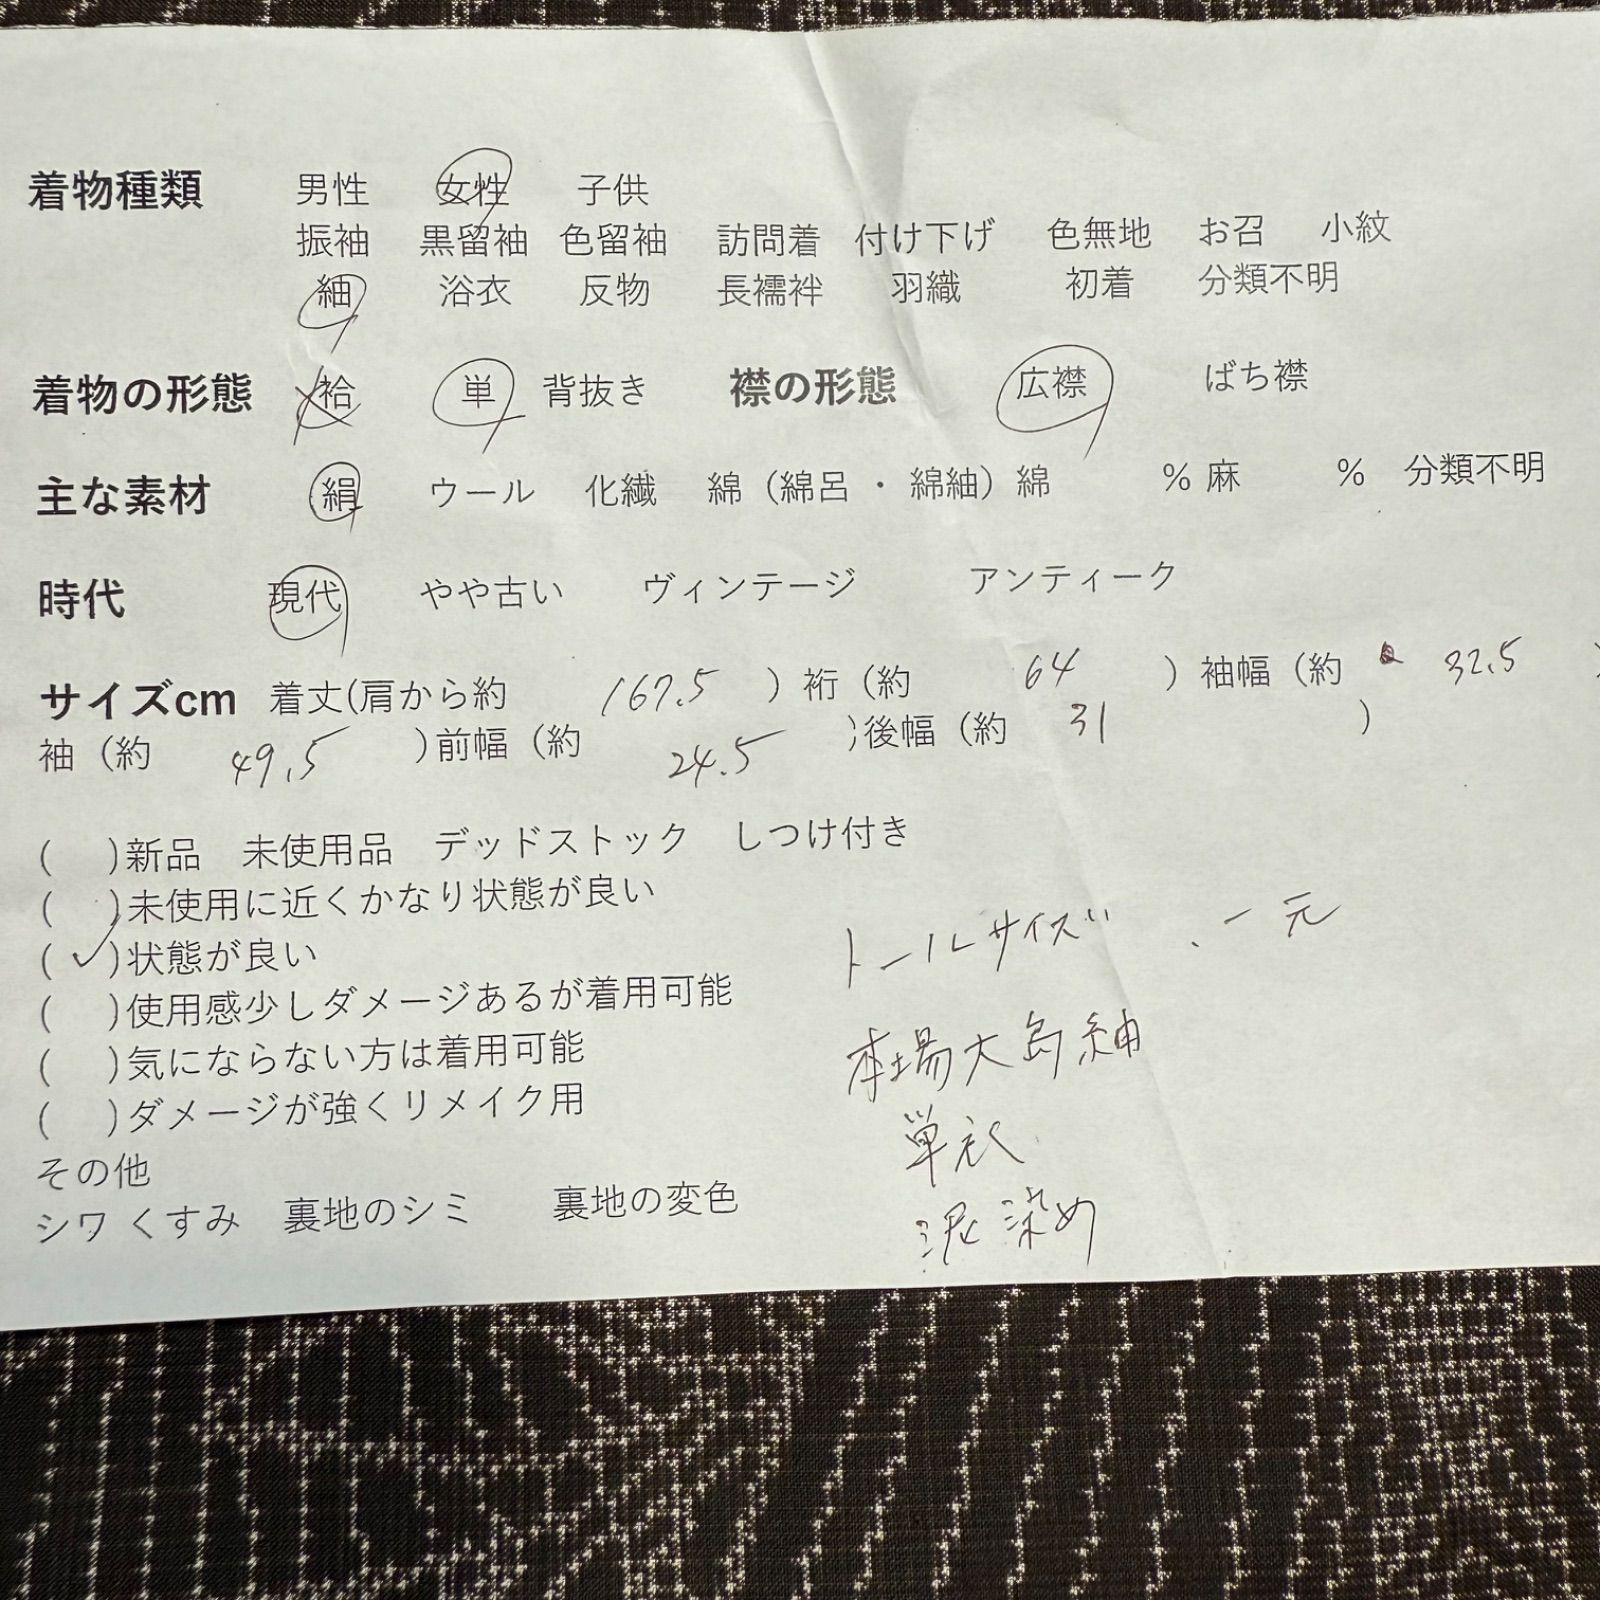 着物種類 男性 女性 子供
振袖 黒留袖 色留袖 訪問着 付け下げ 色無地 お召 小紋
紬 浴衣 反物 長襦袢 羽織 初着 分類不明
着物の形態 袷 単 背抜き 襟の形態 広襟 ばち襟
主な素材 絹 ウール 化繊 綿（綿呂・綿紬）綿 % 麻 % 分類不明
時代 現代 やや古い ヴィンテージ アンティーク
サイズcm 着丈(肩から約 167.5 ) 裄（約 64 ) 袖幅（約 32.5 )
袖（約 49.5 )前幅（約 24.5 )後幅（約 31 )
( )新品 未使用品 デッドストック しつけ付き
( )未使用に近くかなり状態が良い
(✓)状態が良い
( )使用感少しダメージあるが着用可能
( )気にならない方は着用可能
( )ダメージが強くリメイク用
その他
シワ くすみ 裏地のシミ 裏地の変色
トールサイズ . 一元
本場大島紬
単衣
泥染め